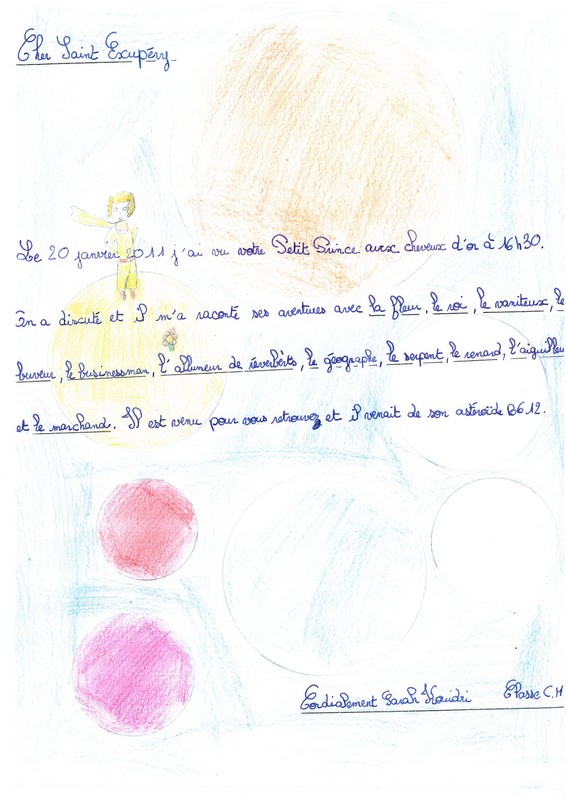 Cher Saint Exupéry
Le 20 janvier 2011 j'ai vu votre Petit Prince aux cheveux d'or à 16h30.
On a discuté et il m'a raconté ses aventures avec la fleur, le roi, le vaniteux, le
buveur, le businessman, l'allumeur de réverbèrts, le géographe, le serpent, le renard, l'aiguilleu
et le marchand. Il est venu pour vous retrouvez et il venait de son astéroïde B612.
Cordialement Sarah Classe C.M